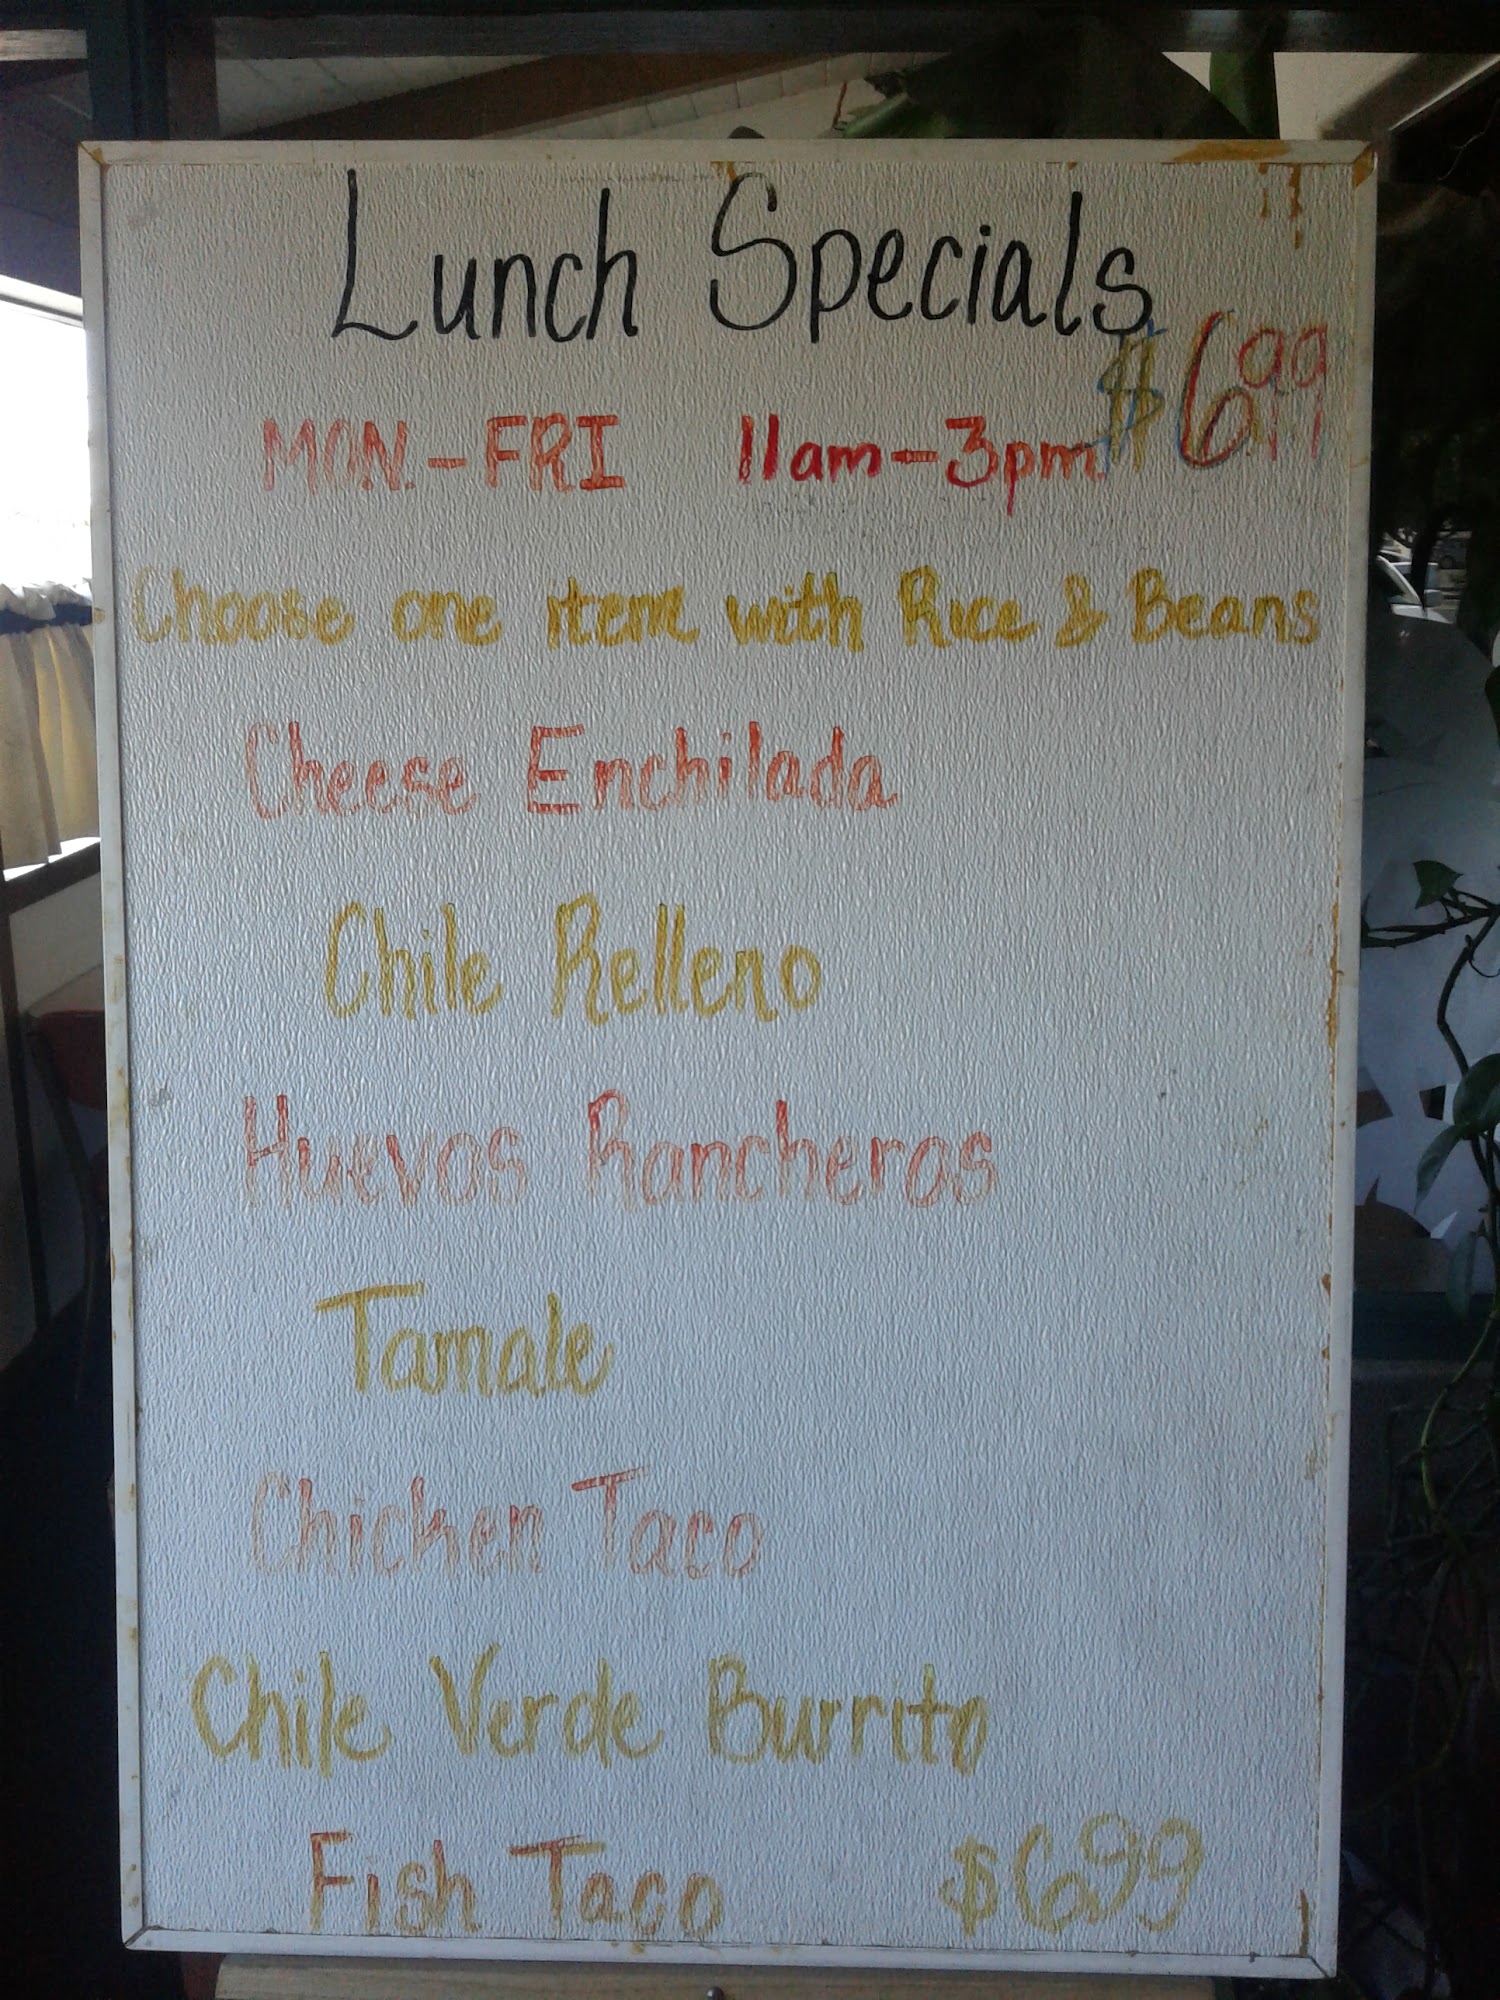 Lunch Specials
MON.-FRI 11am-3pm $6.99
Choose one item with Rice & Beans
Cheese Enchilada
Chile Relleno
Huevos Rancheros
Tamale
Chicken Taco
Chile Verde Burrito
Fish Taco $6.99